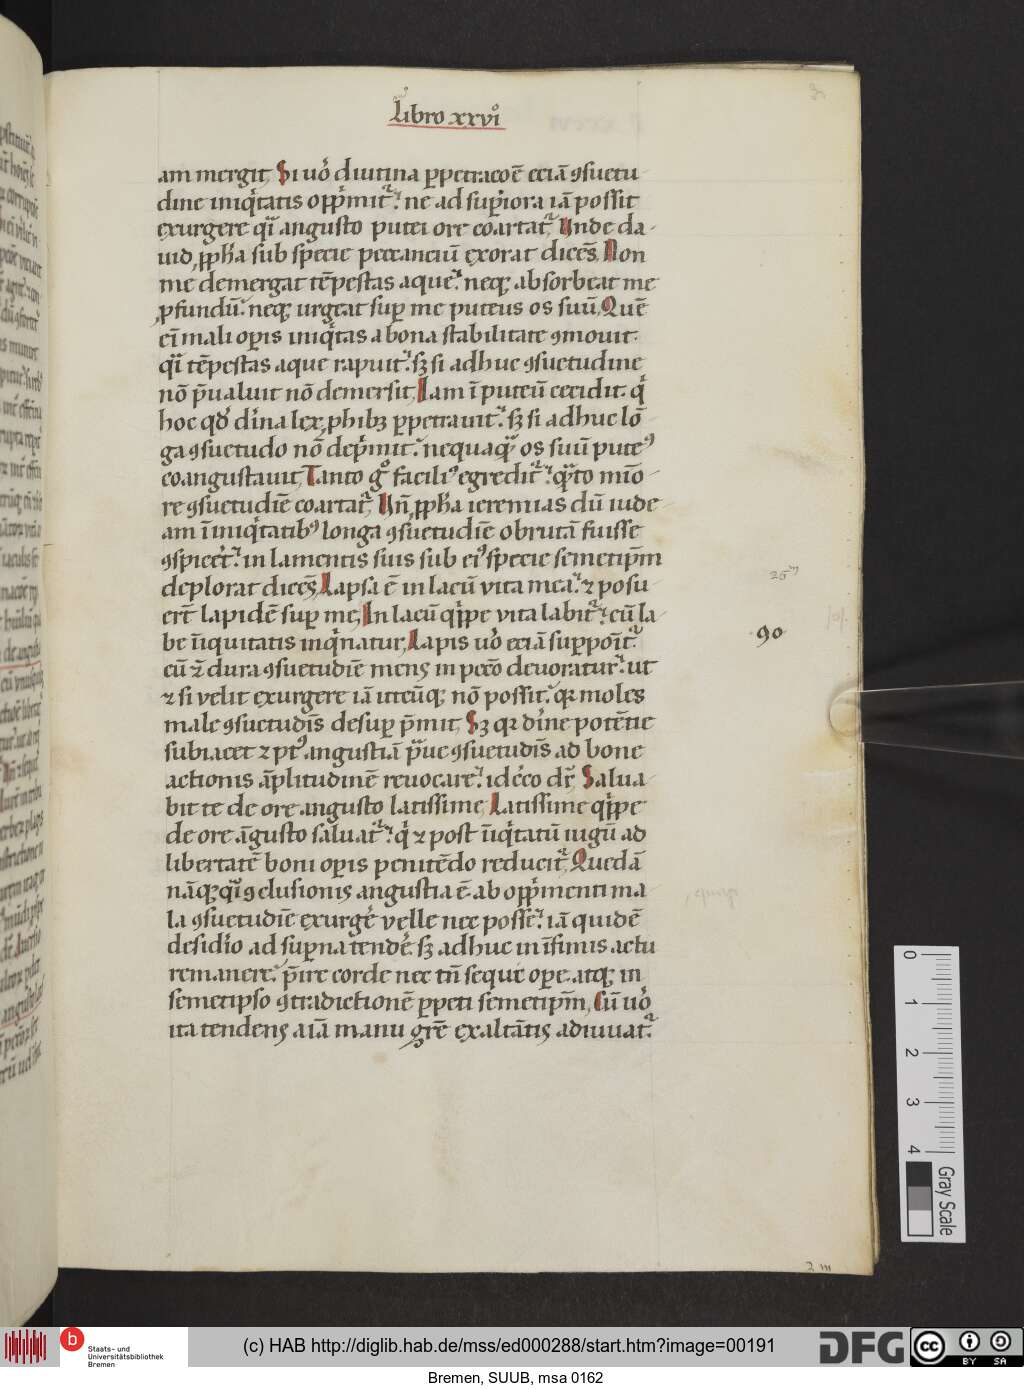 Libro xxvi͛
am mergit, Si uo͛ diutina ꝑpetracōē eciā ꝯsuetu
dine iniq͛tatis opp͛mit᷑. ne ad sup͛iora iā possit
exurgere qi̅ angusto putei ore coartat᷑. Unde da
uid ꝓph̄a sub specie peccanciū exorat dicēs, Non
me demergat tēpestas aque. neqꝫ absorbeat me
ꝓfundū. neqꝫ urgeat suꝑ me puteus os suū, Quē
eī mali oꝑis iniq͛tas a bona stabilitate ꝯmouit.
qi̅ tēpestas aque rapuit. sꝫ si adhuc ꝯsuetudine
nō p̄ualuit nō demersit, Iam ī puteū cecidit. q͛
hoc qđ di͛na lex ꝓhibꝫ ꝑpetrauit. sꝫ si adhuc lō
ga ꝯsuetudo nō dep͛mit. nequaqᷓ os suū puteꝰ
coangustauit, Tanto gͦ faciliꝰ egredit᷑. qᷓto mīo
re ꝯsuetudīe coartat᷑. Un̄ ꝓph̄a ieremias dū iude
am ī iniq͛tatibꝰ longa ꝯsuetudīe obrutā fuisse
ꝯspice͛t. in lamentis suis sub eiꝰ specie semetip̄m
deplorat dicēs, Lapsa ē in lacū vita mea. ⁊ posu
er̄t lapidē suꝑ me, In lacū q͛ppe vita labit᷑. cū la
be īiquitatis inq͛natur, Lapis uo͛ eciā suppoīt᷑.
cū ⁊̄ dura ꝯsuetudīe mens in pccō deuoratur. ut
⁊ si velit exurgere iā utcūqꝫ nō possit. qꝛ moles
male ꝯsuetudīs desuꝑ p̄mit, Sꝫ qꝛ di͛ne potētie
subiacet ⁊ ptꝰ angustiā p̄ue ꝯsuetudīs ad bone
actionis āplitudinē reuocare. idc͛co dr̄ Salua
bit te de ore angusto latissime, Latissime q͛ppe
de ore āgusto saluat᷑. q͛ ⁊ post īiq͛tatū iugū ad
libertatē boni oꝑis penitēdo reducit᷑, Quedā
nāqꝫ qi̅ ꝯclusionis angustia ē ab opp͛menti ma
la ꝯsuetudīe exurge͛ velle nec posse. iā quidē
desidi͛o ad suꝑna tende͛. sꝫ adhuc in īfimis actu
remanere. p̄ire corde nec tn̄ seque͛ oꝑe. atqꝫ in
semetipso ꝯtradictionē ꝑpeti semetip̄m, Cū uo͛
ita tendens aīa manu gr̄e exaltātis adiuuat᷑.
90
0
1
2
3
4
Gray Scale
b
Staats- und
Universitätsbibliothek
Bremen
(c) HAB http://diglib.hab.de/mss/ed000288/start.htm?image=00191
DFG
cc
BY SA
Bremen, SUUB, msa 0162